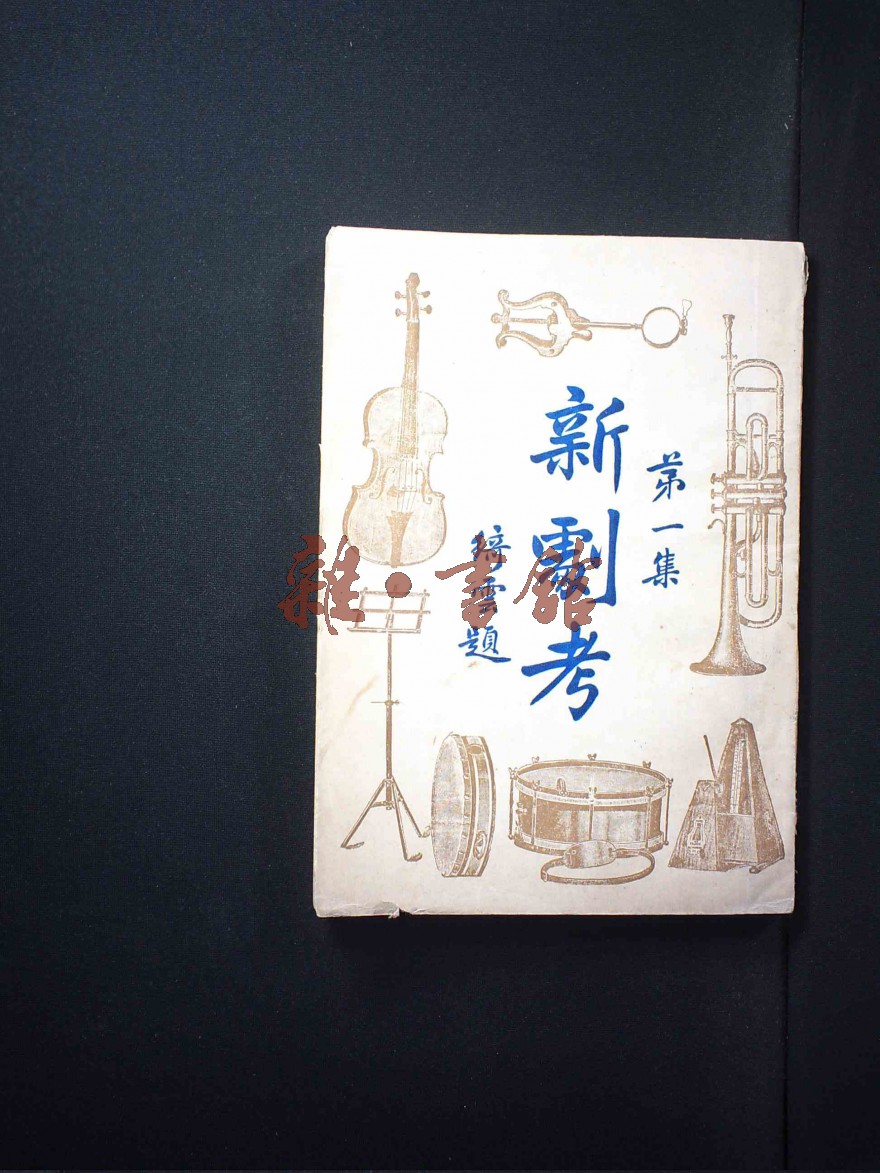 第一集
新劇考
綺雲題
雜·書館